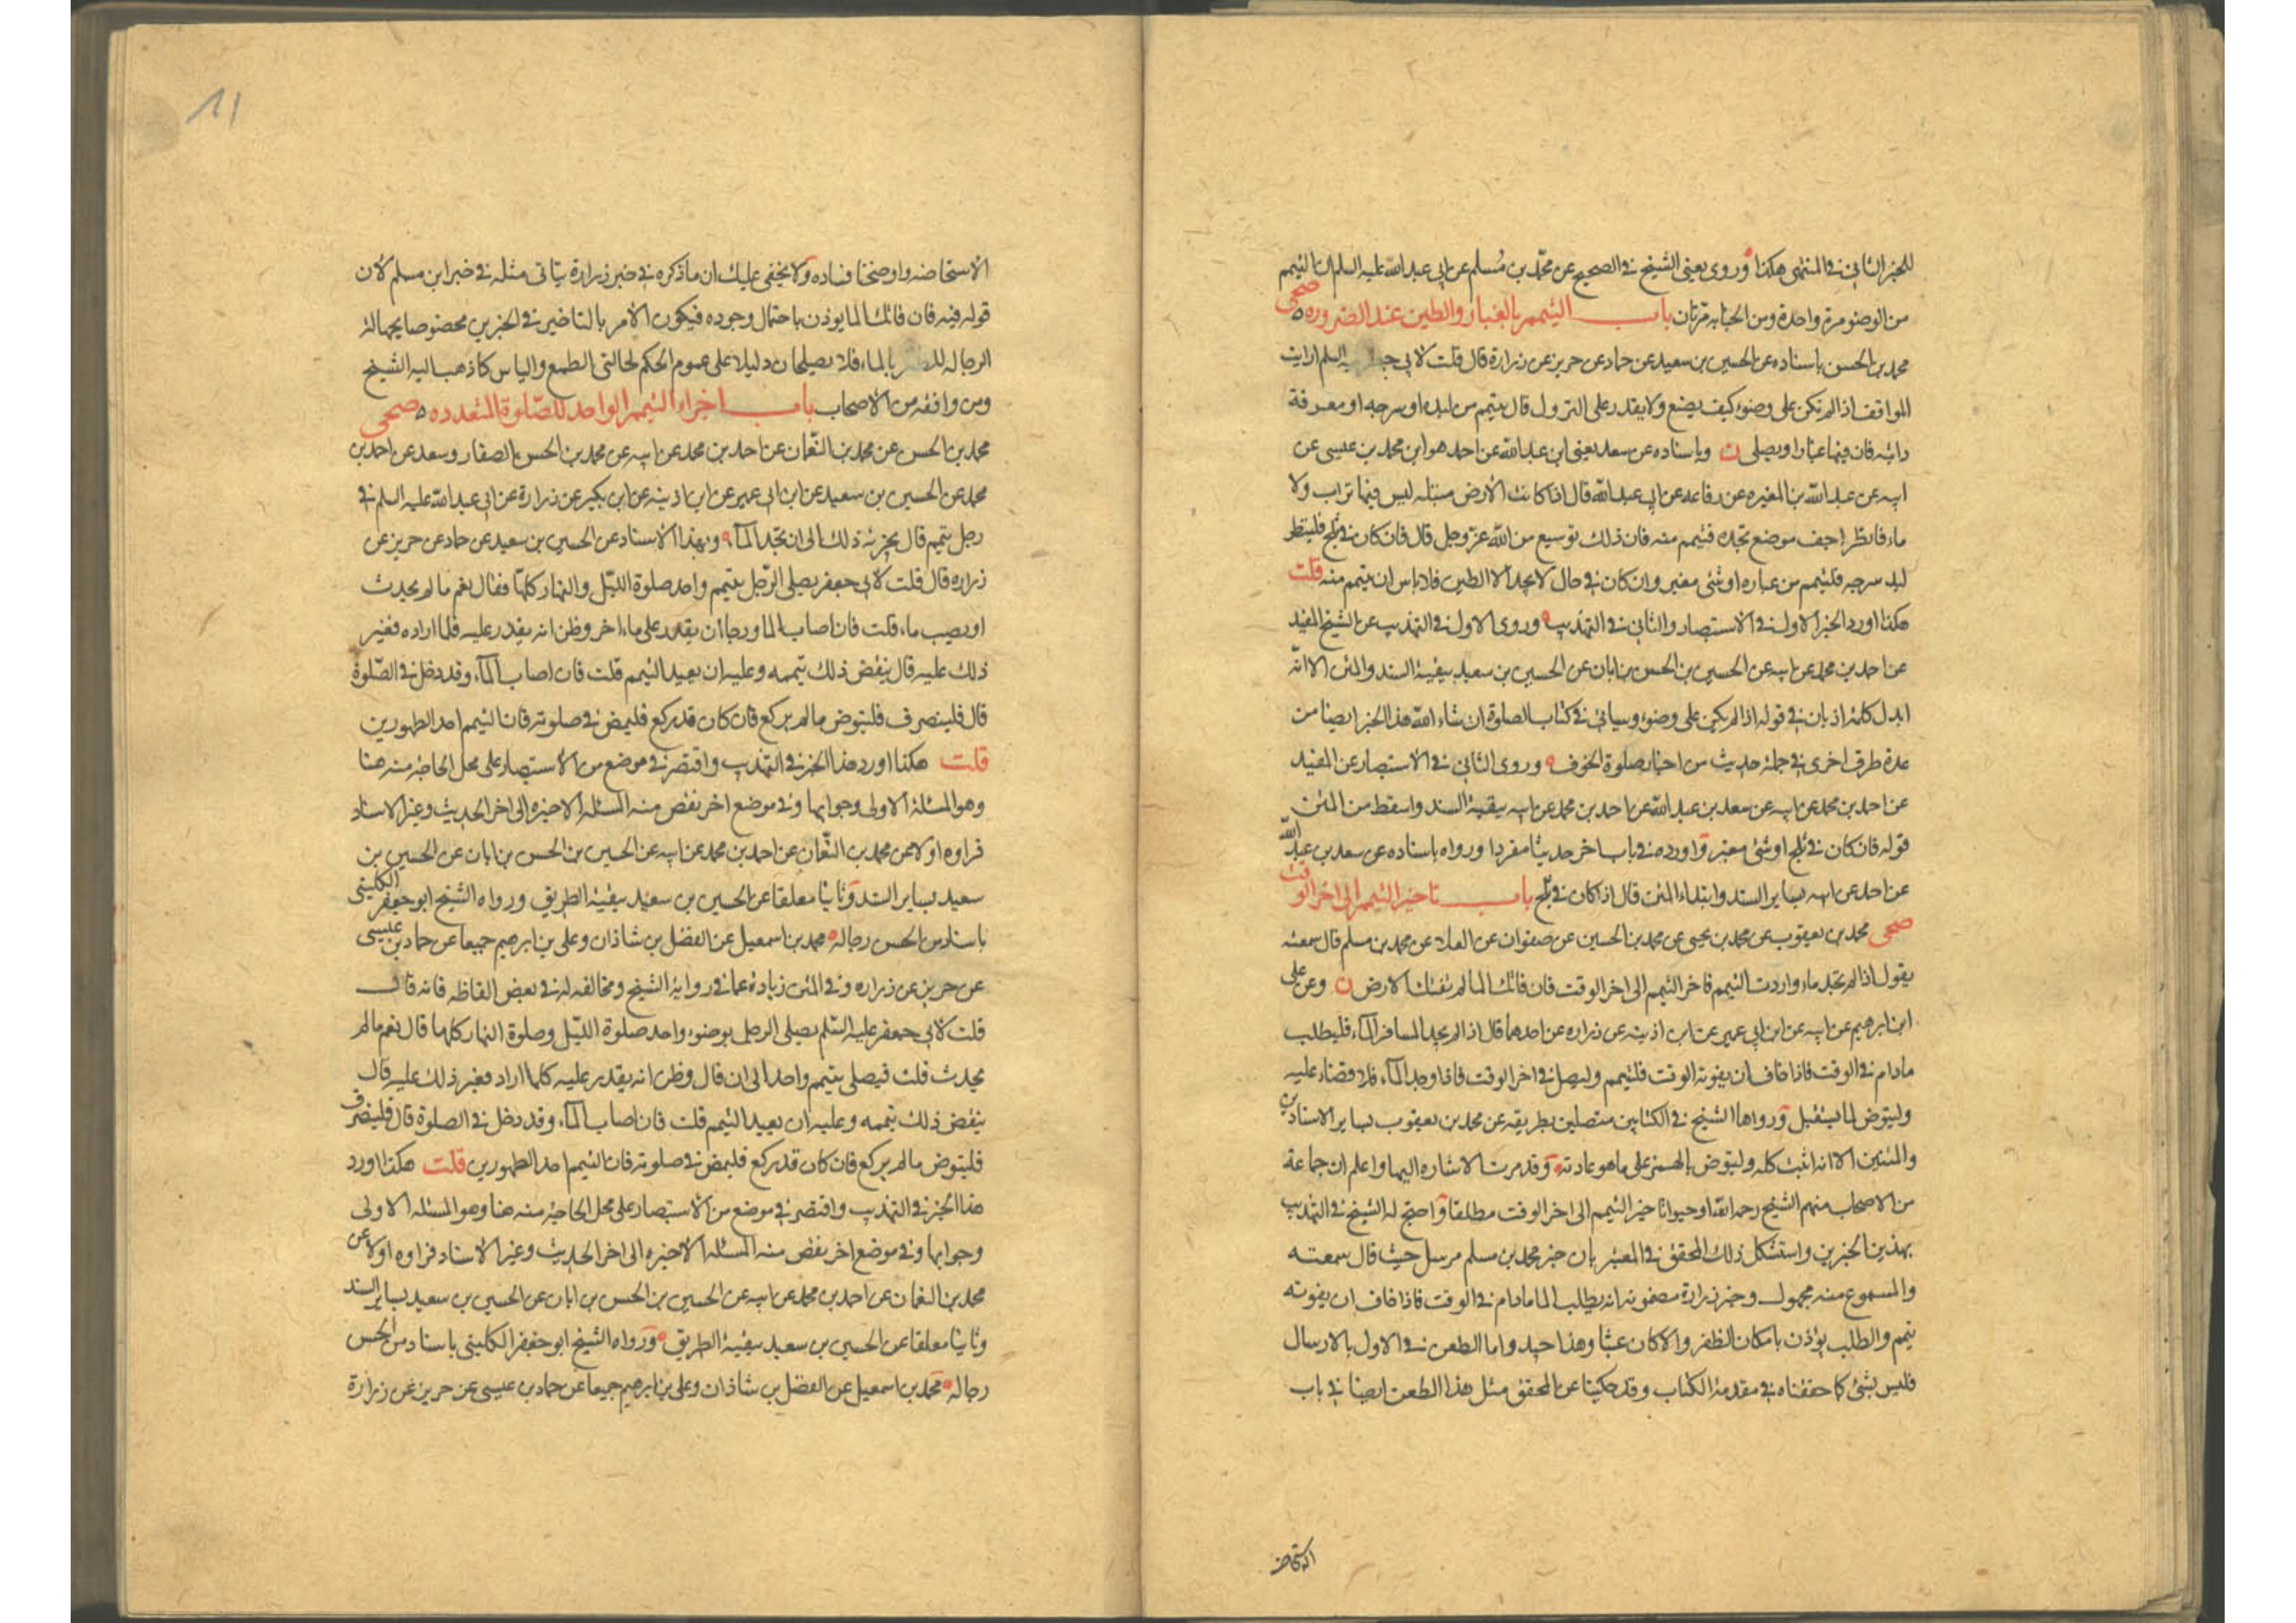 للخبر الثاني في المنتهى هكذا وروى يعني الشيخ في الصحيح عن محمد بن مسلم عن ابي عبد الله عليه السلم ان التيمم
من الوضوء مرة واحدة ومن الجنابه مرتان باب التيمم بالغبار والطين عند الضروره صحى
محمد بن الحسن باسناده عن الحسين بن سعيد عن حماد عن حريز عن زرارة قال قلت لابي السلم ارايت
المواقف اذا لم يكن على وضوء كيف يصنع ولا يقدر على النزول قال يتيمم من لبده او سرجه او معرفة
دابته فان فيها غبارا ويصلى ن وباسناده عن سعد يعني ابن عبد الله عن احمد هو ابن محمد بن عيسى عن
ابيه عن عبد الله بن المغيره عن رفاعه عن ابي عبد الله قال اذا كانت الارض مبتله ليس فيها تراب ولا
ماء فانظر اجف موضع تجده فتيمم منه فان ذلك توسيع من الله عز وجل قال فان كان في ثلج فلينظر
لبد سرجه فليتيمم من غباره او شئ مغبر وان كان في حال لا يجد الا الطين فلا باس ان يتيمم منه قلت
هكذا اورد الخبر الاول في الاستبصار والثاني في التهذيب وروى الاول في التهذيب عن الشيخ المفيد
عن احمد بن محمد عن ابيه عن الحسين بن الحسن بن ابان عن الحسين بن سعيد ببقية السند والمتن الا انه
ابدل كلمة اذ بان في قوله اذا لم يكن على وضوء وسياتي في كتاب الصلوة ان شاء الله هذا الخبر ايضا من
عدة طرق اخرى في جملة حديث من اخبار صلوة الخوف وروى الثاني في الاستبصار عن المفيد
عن احمد بن محمد عن ابيه عن سعد بن عبد الله عن احمد بن محمد عن ابيه ببقية السند واسقط من المتن
قوله فان كان في ثلج او شئ مغبر واورده في باب اخر حديثا مفردا ورواه باسناده عن سعد بن عبد الله
عن احمد عن ابيه بساير السند وابتداء المتن قال اذا كان في ثلج باب تاخير التيمم الى اخر الوقت
صحى محمد بن يعقوب عن محمد بن يحيى عن محمد بن الحسين عن صفوان عن العلا عن محمد بن مسلم قال سمعته
يقول اذا لم تجد ماء واردت التيمم فاخر التيمم الى اخر الوقت فان فاتك الماء لم تفتك الارض ن وعن على
ابن ابرهيم عن ابيه عن ابن ابي عمير عن ابن اذينه عن زراره عن احدهما قال اذا لم يجد المسافر الماء فليطلب
مادام في الوقت فاذا خاف ان يفوته الوقت فليتيمم وليصل في اخر الوقت فاذا وجد الماء فلا قضاء عليه
وليتوض لما يستقبل ورواهما الشيخ في الكتابين متصلين بطريقه عن محمد بن يعقوب بساير الاسنادين
والمتنين الا انه اثبت كله وليتوض بالهمز على ما هو عادته وقد مرت الاشاره اليها واعلم ان جماعة
من الاصحاب منهم الشيخ رحمه الله اوجبوا تاخير التيمم الى اخر الوقت مطلقا واحتج له الشيخ في التهذيب
بهذين الخبرين واستشكل ذلك المحقق في المعتبر بان خبر محمد بن مسلم مرسل حيث قال سمعته
والمسموع منه مجهول وخبر زرارة مضمونه انه يطلب الماء مادام في الوقت فاذا خاف ان يفوته
يتيمم والطلب يؤذن بامكان الظفر والا كان عبثا وهذا جيد واما الطعن في الاول بالارسال
فليس بشئ كما حققناه في مقدمة الكتاب وقد حكينا عن المحقق مثل هذا الطعن ايضا في باب
الاستحاضه
11
الاستحاضه واوضحنا فساده ولا يخفى عليك ان ما ذكره في خبر زرارة يتاتى مثله في خبر ابن مسلم لان
قوله فيه فان فاتك الماء يوذن باحتمال وجوده فيكون الامر بالتاخير في الخبرين مخصوصا بحالة
الرجاء للظفر بالماء فلا يصلحان دليلا على عموم الحكم لحالتي الطمع والياس كما ذهب اليه الشيخ
ومن وافقه من الاصحاب باب اجزاء التيمم الواحد للصلوة المتعدده صحى
محمد بن الحسن عن محمد بن النعمان عن احمد بن محمد عن ابيه عن محمد بن الحسن الصفار وسعد عن احمد بن
محمد عن الحسين بن سعيد عن ابن ابي عمير عن ابن اذينه عن ابن بكير عن زرارة عن ابي عبد الله عليه السلم في
رجل تيمم قال يجزئه ذلك الى ان يجد الماء وبهذا الاسناد عن الحسين بن سعيد عن حماد عن حريز عن
زراره قال قلت لابي جعفر يصلى الرجل بتيمم واحد صلوة الليل والنهار كلها فقال نعم ما لم يحدث
او يصيب ماء قلت فان اصاب الماء ورجا ان يقدر على ماء اخر وظن انه يقدر عليه فلما اراده فعسر
ذلك عليه قال ينقض ذلك تيممه وعليه ان يعيد التيمم قلت فان اصاب الماء وقد دخل في الصلوة
قال فلينصرف فليتوض ما لم يركع فان كان قد ركع فليمض في صلوته فان التيمم احد الطهورين
قلت هكذا اورد هذا الخبر في التهذيب واقتصر في موضع من الاستبصار على محل الحاجة منه هنا
وهو المسئلة الاولى وجوابها وفي موضع اخر نقص منه المسئلة الاخيره الى اخر الحديث وغير الاسناد
فرواه اولا عن محمد بن النعمان عن احمد بن محمد عن ابيه عن الحسين بن الحسن بن ابان عن الحسين بن
سعيد بساير السند وثانيا معلقا عن الحسين بن سعيد ببقية الطريق ورواه الشيخ ابو جعفر الكليني
باسناد من الحسن رجاله محمد بن اسمعيل عن الفضل بن شاذان وعلي بن ابرهيم جميعا عن حماد بن عيسى
عن حريز عن زراره وفي المتن زيادة عما في رواية الشيخ ومخالفه له في بعض الفاظه فانه قال
قلت لابي جعفر عليه السلم يصلى الرجل بوضوء واحد صلوة الليل وصلوة النهار كلها قال نعم ما لم
يحدث قلت فيصلى بتيمم واحد الى ان قال وظن انه يقدر عليه كلما اراد فعسر ذلك عليه قال
ينقض ذلك تيممه وعليه ان يعيد التيمم قلت فان اصاب الماء وقد دخل في الصلوة قال فلينصرف
فليتوض ما لم يركع فان كان قد ركع فليمض في صلوته فان التيمم احد الطهورين قلت هكذا اورد
هذا الخبر في التهذيب واقتصر في موضع من الاستبصار على محل الحاجة منه هنا وهو المسئله الاولى
وجوابها وفي موضع اخر نقص منه المسئله الاخيره الى اخر الحديث وغير الاسناد فرواه اولا عن
محمد بن النعمان عن احمد بن محمد عن ابيه عن الحسين بن الحسن بن ابان عن الحسين بن سعيد بساير السند
وثانيا معلقا عن الحسين بن سعيد ببقية الطريق ورواه الشيخ ابو جعفر الكليني باسناد من الحسن
رجاله محمد بن اسمعيل عن الفضل بن شاذان وعلي بن ابرهيم جميعا عن حماد بن عيسى عن حريز عن زرارة